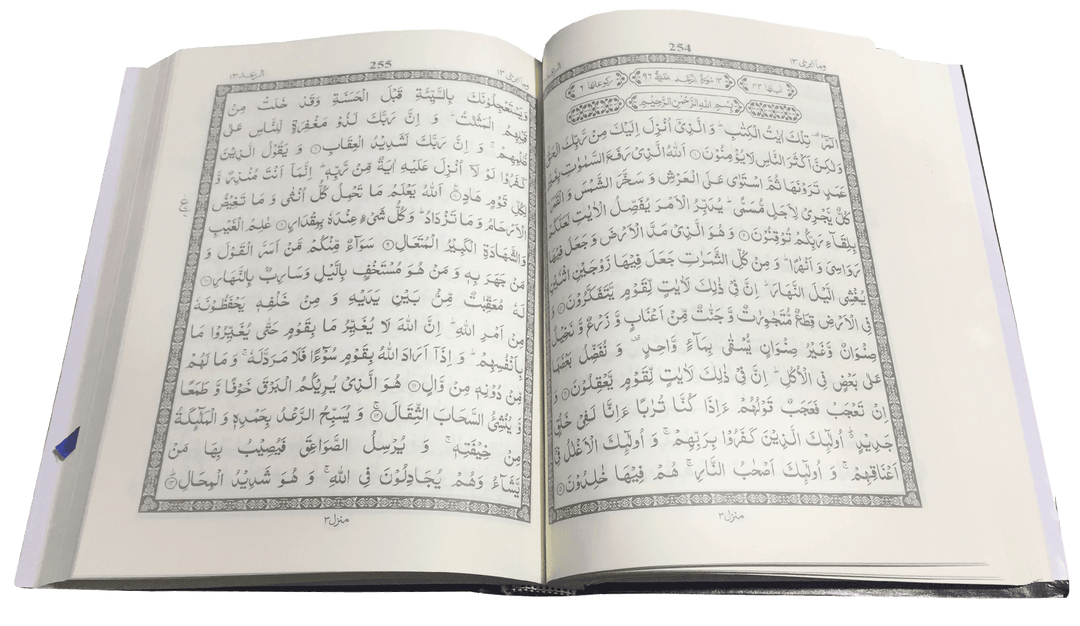 وما ابرئ ١٣
254
الرعد
اٰیاتها ٤٣ ١٣ سُوْرَةُ الرَّعْدِ مَدَنِيَّةٌ ٩٦ رکوعاتها ٦
بِسْمِ اللهِ الرَّحْمٰنِ الرَّحِيْمِ
الٓمّٓرٰ ۚ تِلْكَ اٰيٰتُ الْكِتٰبِ ؕ وَ الَّذِيْۤ اُنْزِلَ اِلَيْكَ مِنْ رَّبِّكَ الْحَقُّ
وَلٰكِنَّ اَكْثَرَ النَّاسِ لَا يُؤْمِنُوْنَ ۝۱ اَللهُ الَّذِيْ رَفَعَ السَّمٰوٰتِ بِغَيْرِ
عَمَدٍ تَرَوْنَهَا ثُمَّ اسْتَوٰى عَلَى الْعَرْشِ وَ سَخَّرَ الشَّمْسَ وَ الْقَمَرَ
كُلٌّ يَّجْرِيْ لِاَجَلٍ مُّسَمًّى ؕ يُدَبِّرُ الْاَمْرَ يُفَصِّلُ الْاٰيٰتِ لَعَلَّكُمْ
بِلِقَآءِ رَبِّكُمْ تُوْقِنُوْنَ ۝۲ وَ هُوَ الَّذِيْ مَدَّ الْاَرْضَ وَ جَعَلَ فِيْهَا
رَوَاسِيَ وَ اَنْهٰرًا ؕ وَ مِنْ كُلِّ الثَّمَرٰتِ جَعَلَ فِيْهَا زَوْجَيْنِ اثْنَيْنِ
يُغْشِي الَّيْلَ النَّهَارَ ؕ اِنَّ فِيْ ذٰلِكَ لَاٰيٰتٍ لِّقَوْمٍ يَّتَفَكَّرُوْنَ ۝۳ وَ
فِي الْاَرْضِ قِطَعٌ مُّتَجٰوِرٰتٌ وَّ جَنّٰتٌ مِّنْ اَعْنَابٍ وَّ زَرْعٌ وَّ نَخِيْلٌ
صِنْوَانٌ وَّغَيْرُ صِنْوَانٍ يُّسْقٰى بِمَآءٍ وَّاحِدٍ ۫ وَ نُفَضِّلُ بَعْضَهَا
عَلٰى بَعْضٍ فِي الْاُكُلِ ؕ اِنَّ فِيْ ذٰلِكَ لَاٰيٰتٍ لِّقَوْمٍ يَّعْقِلُوْنَ ۝۴ وَ
اِنْ تَعْجَبْ فَعَجَبٌ قَوْلُهُمْ ءَاِذَا كُنَّا تُرٰبًا ءَاِنَّا لَفِيْ خَلْقٍ
جَدِيْدٍ ؕ اُولٰٓئِكَ الَّذِيْنَ كَفَرُوْا بِرَبِّهِمْ ۚ وَ اُولٰٓئِكَ الْاَغْلٰلُ فِيْۤ
اَعْنَاقِهِمْ ۚ وَ اُولٰٓئِكَ اَصْحٰبُ النَّارِ ۚ هُمْ فِيْهَا خٰلِدُوْنَ ۝۵
منزل ٣
وما ابرئ ١٣
255
الرعد ١٣
وَيَسْتَعْجِلُوْنَكَ بِالسَّيِّئَةِ قَبْلَ الْحَسَنَةِ وَقَدْ خَلَتْ مِنْ
قَبْلِهِمُ الْمَثُلٰتُ ؕ وَ اِنَّ رَبَّكَ لَذُوْ مَغْفِرَةٍ لِّلنَّاسِ عَلٰى
ظُلْمِهِمْ ۚ وَ اِنَّ رَبَّكَ لَشَدِيْدُ الْعِقَابِ ۝۶ وَ يَقُوْلُ الَّذِيْنَ
كَفَرُوْا لَوْ لَاۤ اُنْزِلَ عَلَيْهِ اٰيَةٌ مِّنْ رَّبِّهٖ ؕ اِنَّمَاۤ اَنْتَ مُنْذِرٌ وَّ
لِكُلِّ قَوْمٍ هَادٍ ۝۷ اَللهُ يَعْلَمُ مَا تَحْمِلُ كُلُّ اُنْثٰى وَ مَا تَغِيْضُ
ع
الْاَرْحَامُ وَ مَا تَزْدَادُ ؕ وَ كُلُّ شَيْءٍ عِنْدَهٗ بِمِقْدَارٍ ۝۸ عٰلِمُ الْغَيْبِ
وَالشَّهَادَةِ الْكَبِيْرُ الْمُتَعَالِ ۝۹ سَوَآءٌ مِّنْكُمْ مَّنْ اَسَرَّ الْقَوْلَ وَ
مَنْ جَهَرَ بِهٖ وَ مَنْ هُوَ مُسْتَخْفٍۭ بِالَّيْلِ وَسَارِبٌۢ بِالنَّهَارِ ۝۱۰
لَهٗ مُعَقِّبٰتٌ مِّنْۢ بَيْنِ يَدَيْهِ وَ مِنْ خَلْفِهٖ يَحْفَظُوْنَهٗ
مِنْ اَمْرِ اللهِ ؕ اِنَّ اللهَ لَا يُغَيِّرُ مَا بِقَوْمٍ حَتّٰى يُغَيِّرُوْا مَا
بِاَنْفُسِهِمْ ؕ وَ اِذَاۤ اَرَادَ اللهُ بِقَوْمٍ سُوْٓءًا فَلَا مَرَدَّ لَهٗ ۚ وَ مَا لَهُمْ
مِّنْ دُوْنِهٖ مِنْ وَّالٍ ۝۱۱ هُوَ الَّذِيْ يُرِيْكُمُ الْبَرْقَ خَوْفًا وَّ طَمَعًا
وَّ يُنْشِئُ السَّحَابَ الثِّقَالَ ۝۱۲ وَ يُسَبِّحُ الرَّعْدُ بِحَمْدِهٖ وَ الْمَلٰٓئِكَةُ
مِنْ خِيْفَتِهٖ ۚ وَ يُرْسِلُ الصَّوَاعِقَ فَيُصِيْبُ بِهَا مَنْ
يَّشَآءُ وَهُمْ يُجَادِلُوْنَ فِي اللهِ ۚ وَ هُوَ شَدِيْدُ الْمِحَالِ ۝۱۳
منزل ٣